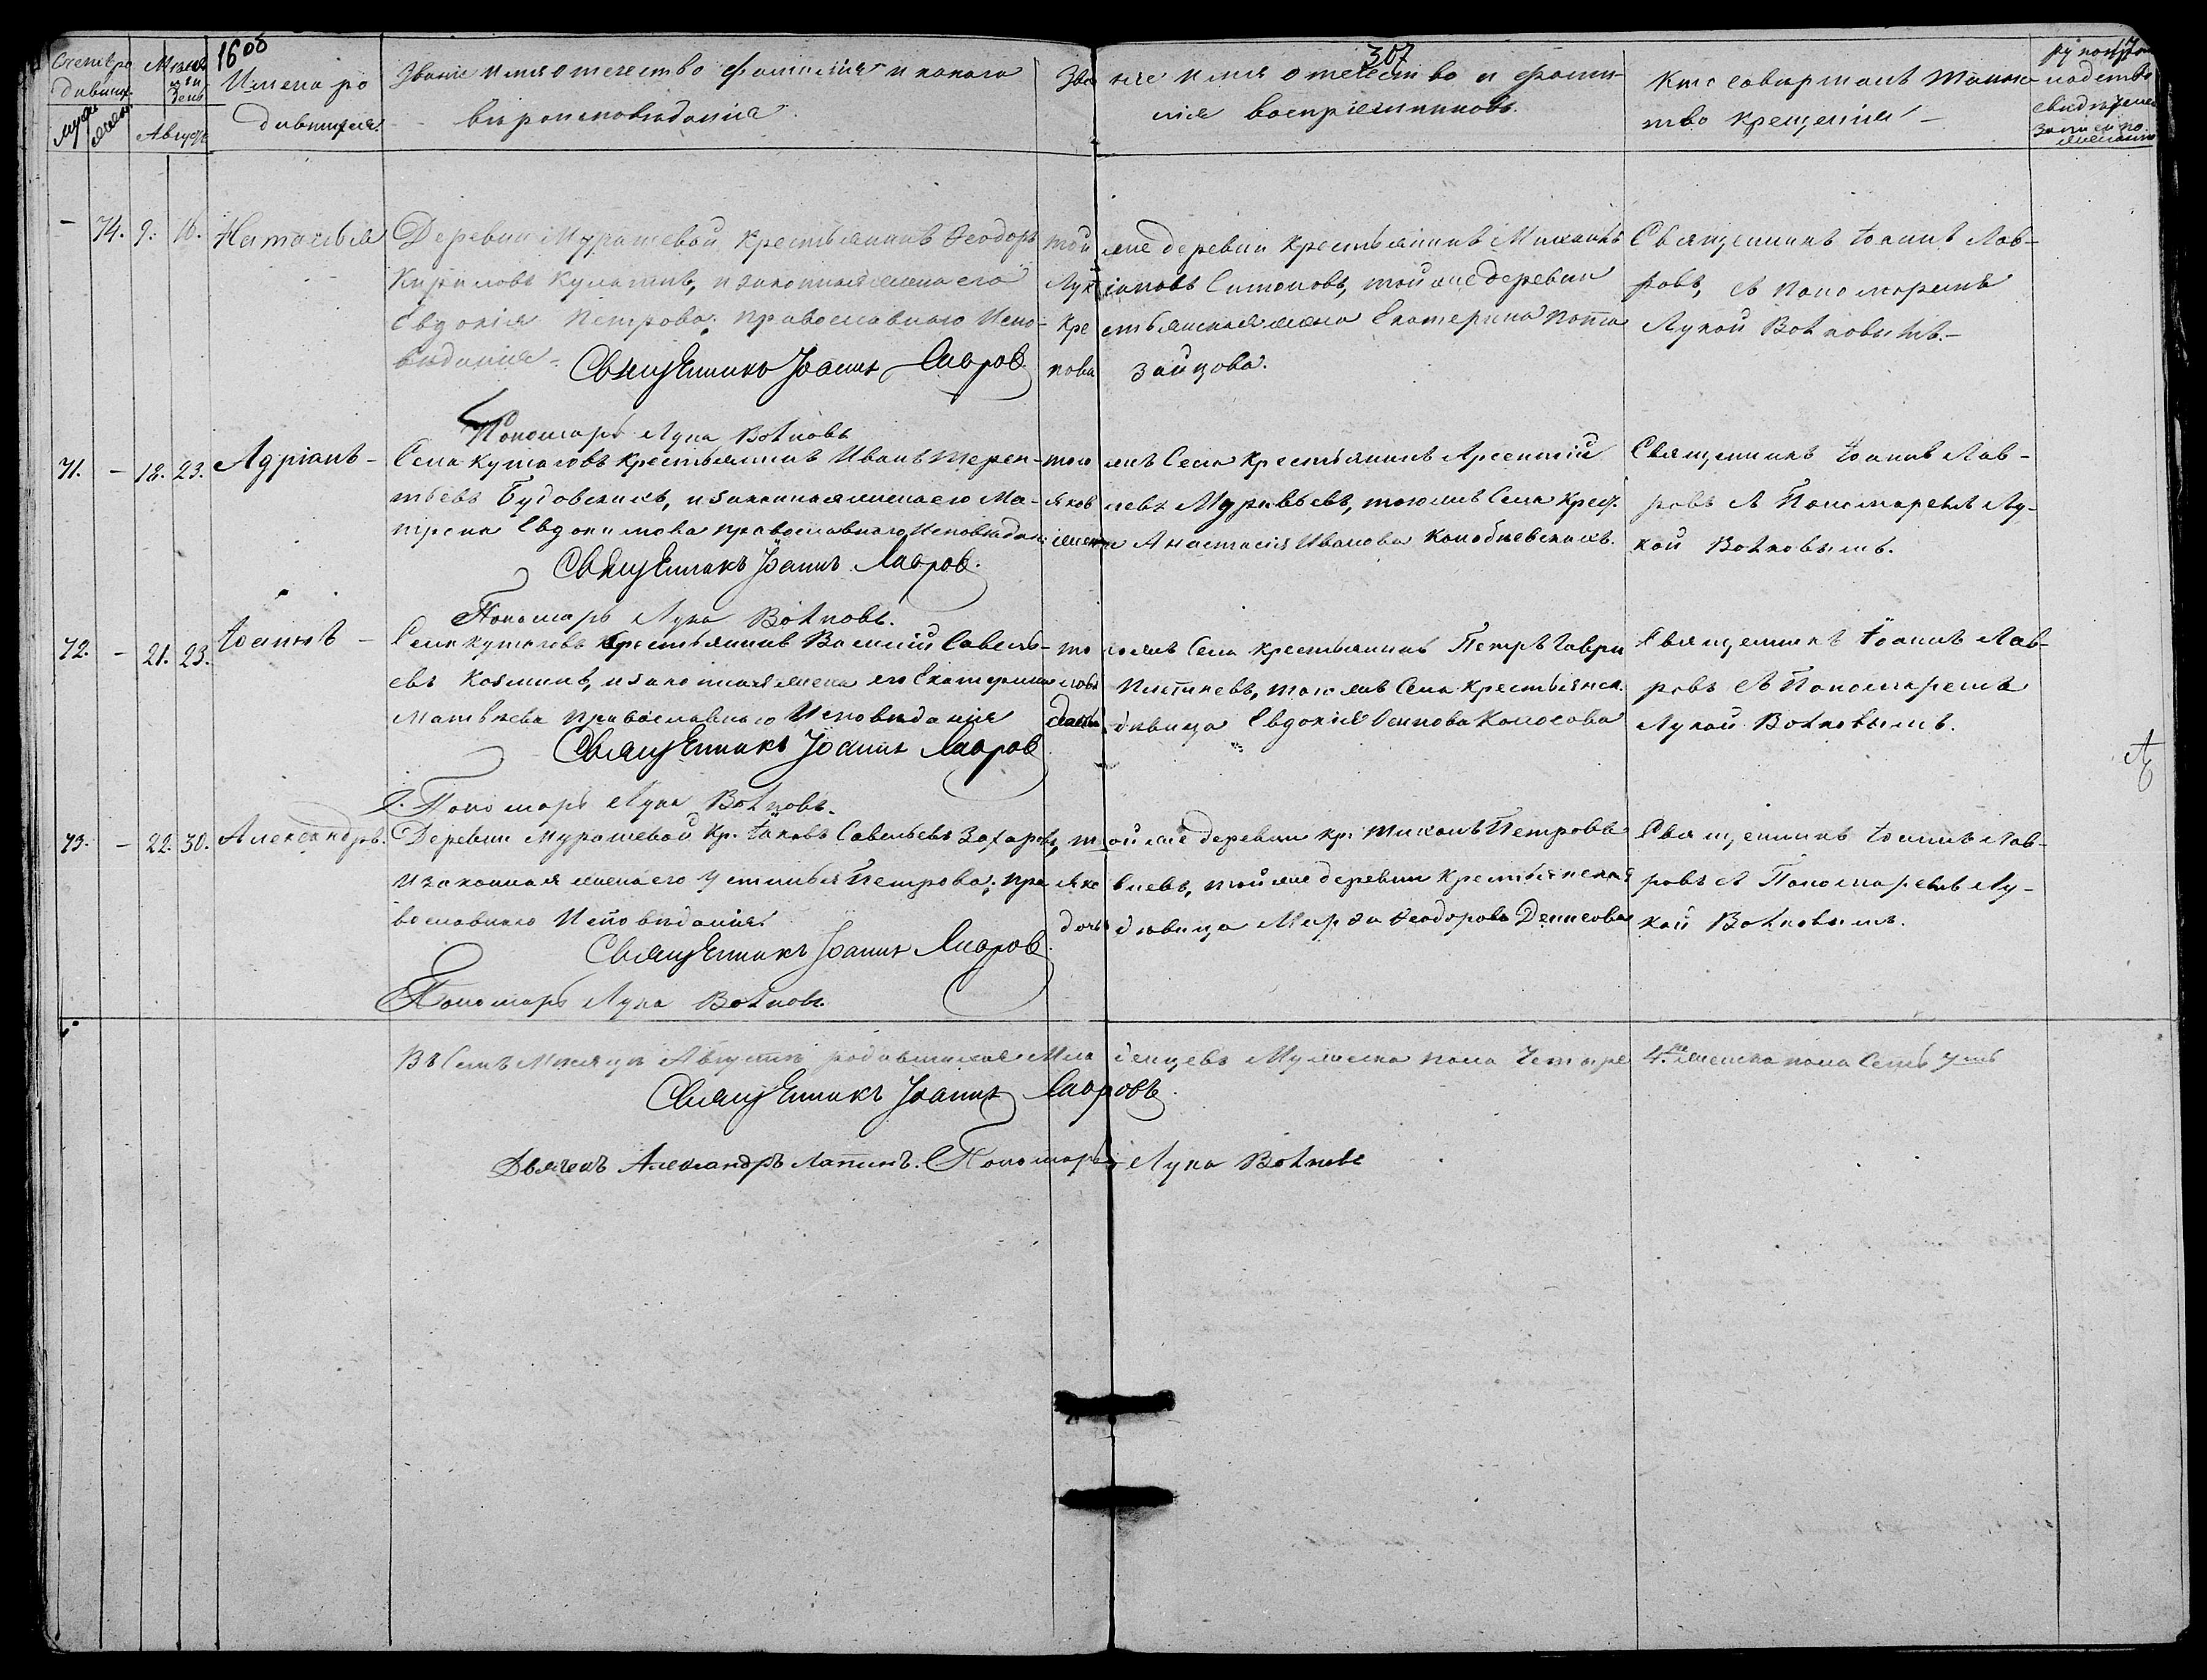 1608
307
Счетъ ро
дивших
Муж
жен
Мѣсяц
и
день
Августъ
Имена ро
дившихся.
Званіе имя отечество фамилія и какого
вѣроисповѣданія
Званіе имя отечество и фами-
лія воспріемниковъ.
Кто совершалъ таинс
тво крещенія –
– 74. 9. 16. Наталья
Деревни Мурашевой, крестьянинъ Ѳеодоръ
Кириловъ Кулатинъ, и законная жена его
Евдокія Петрова: православнаго Испо-
вѣданія –
Священникъ Іоаннъ Лавров.
Пономарь Лука Волковъ
той же деревни крестьянинъ Михаилъ
Симоновъ, той же деревни
крестьянская жена Екатерина
Зайцова.
Священникъ Іоаннъ Лав-
ровъ, съ Пономаремъ
Лукой Волковымъ. –
71. – 18. 23. Адріанъ –
Села Куталовъ крестьянинъ Иванъ Терен-
тьевъ Будовскихъ, и законная жена его Ма-
трена Евдокимова православнаго Исповѣдан
Священникъ Іоаннъ Лавров.
Пономарь Лука Волковъ.
того жъ Села крестьянинъ Арсентій
Яковлевъ Муравьевъ, того жъ Села крест.
жена Анастасія Иванова
Священникъ Іоаннъ Лав-
ровъ съ Пономаремъ Лу-
кой Волковымъ.
72. – 21. 23. Іоаннъ –
Села Куталовъ крестьянинъ Василій Савель-
евъ Козминъ, и законная жена его Екатерина
Матвѣева православнаго Исповѣданія
Священникъ Іоаннъ Лавров
Пономарь Лука Волковъ.
того жъ Села крестьянинъ Петръ Гаври
ловъ того жъ Села крестьянск.
дѣвица Евдокія Осипова Колосова
Священникъ Іоаннъ Лав-
ровъ съ Пономаремъ
Лукой Волковымъ.
73. – 22. 30. Александръ.
Деревни Мурашевой Кр. Іаковъ Савельевъ Захаровъ,
и законная жена его Устинья Петрова: пра
вославнаго Исповѣданія
Священникъ Іоаннъ Лавров.
Пономарь Лука Волковъ.
той же деревни кр: Петровъ
Яковлевъ, той же деревни крестьянская
дочь дѣвица Марѳа Ѳеодорова Денисова
Священникъ Іоаннъ Лав-
ровъ съ Пономаремъ Лу-
кой Волковымъ.
Въ семъ Мѣсяцѣ Августѣ родившихся младенцевъ Мужеска пола Четыре 4. женска пола Семь 7мь
Священникъ Іоаннъ Лавровъ.
Дьячекъ Александръ Лапинъ. Пономарь Лука Волковъ